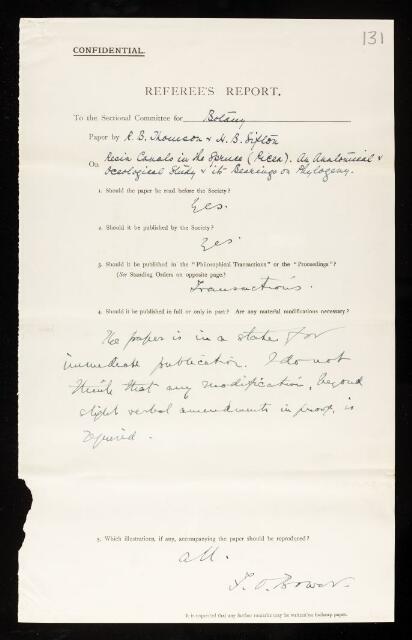 131
CONFIDENTIAL.
REFEREE'S REPORT.
To the Sectional Committee for Botany
Paper by R. B. Thomson & H. B. Sifton
On Resin Canals in the Spruce (Picea). An Anatomical &
Oecological Study & its Bearings on Phylogeny.
1. Should the paper be read before the Society?
Yes.
2. Should it be published by the Society?
Yes.
3. Should it be published in the "Philosophical Transactions" or the "Proceedings"?
(See Standing Orders on opposite page.)
Transactions.
4. Should it be published in full or only in part? Are any material modifications necessary?
The paper is in a state for
immediate publication. I do not
think that any modification, beyond
slight verbal amendments in proof, is
required.
5. Which illustrations, if any, accompanying the paper should be reproduced?
All.
F. O. Bower.
It is requested that any further remarks may be written on foolscap paper.